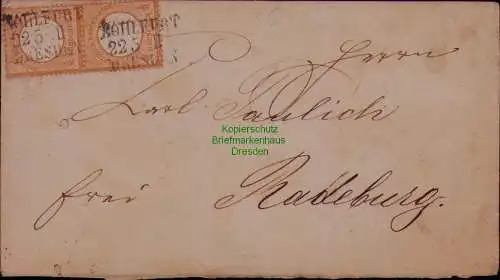 ROHLFURT
22 5 II
DRESDEN
Herrn
Carl Paulich
Kopierschutz
Briefmarkenhaus
Dresden
frei Radeburg.